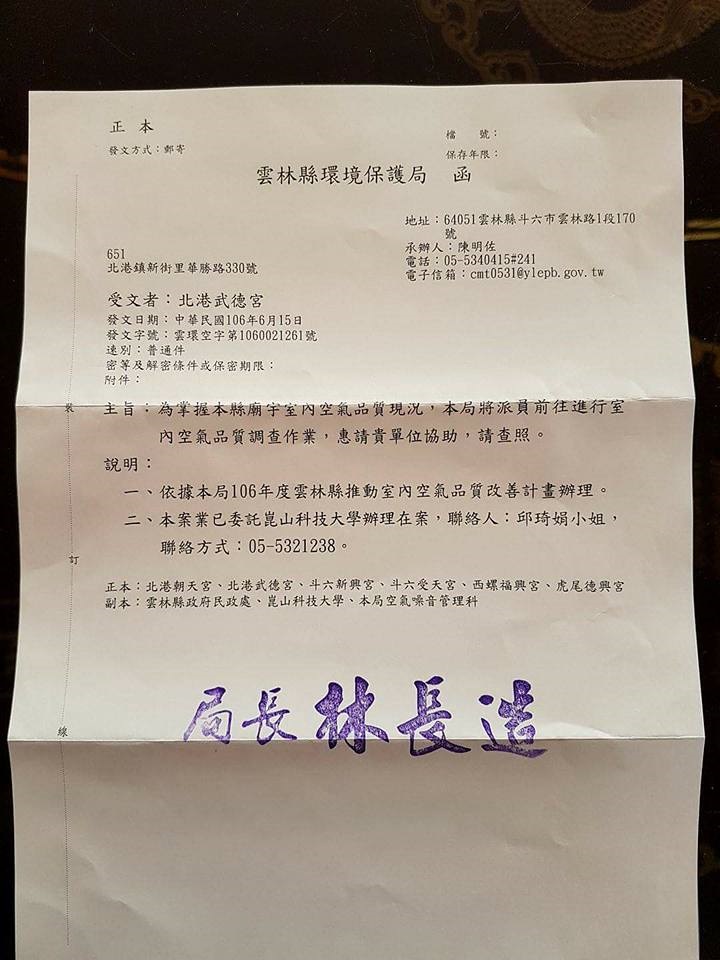 正 本
檔 號：
發文方式：郵寄
保存年限：
雲林縣環境保護局 函
地址：64051雲林縣斗六市雲林路1段170
號
承辦人：陳明佐
電話：05-5340415#241
電子信箱：cmt0531@ylepb.gov.tw
651
北港鎮新街里華勝路330號
受文者：北港武德宮
發文日期：中華民國106年6月15日
發文字號：雲環空字第1060021261號
速別：普通件
密等及解密條件或保密期限：
附件：
主旨：為掌握本縣廟宇室內空氣品質現況，本局將派員前往進行室
內空氣品質調查作業，惠請貴單位協助，請查照。
說明：
一、依據本局106年度雲林縣推動室內空氣品質改善計畫辦理。
二、本案業已委託崑山科技大學辦理在案，聯絡人：邱琦娟小姐，
聯絡方式：05-5321238。
正本：北港朝天宮、北港武德宮、斗六新興宮、斗六受天宮、西螺福興宮、虎尾德興宮
副本：雲林縣政府民政處、崑山科技大學、本局空氣噪音管理科
局長 林長造
裝
訂
線